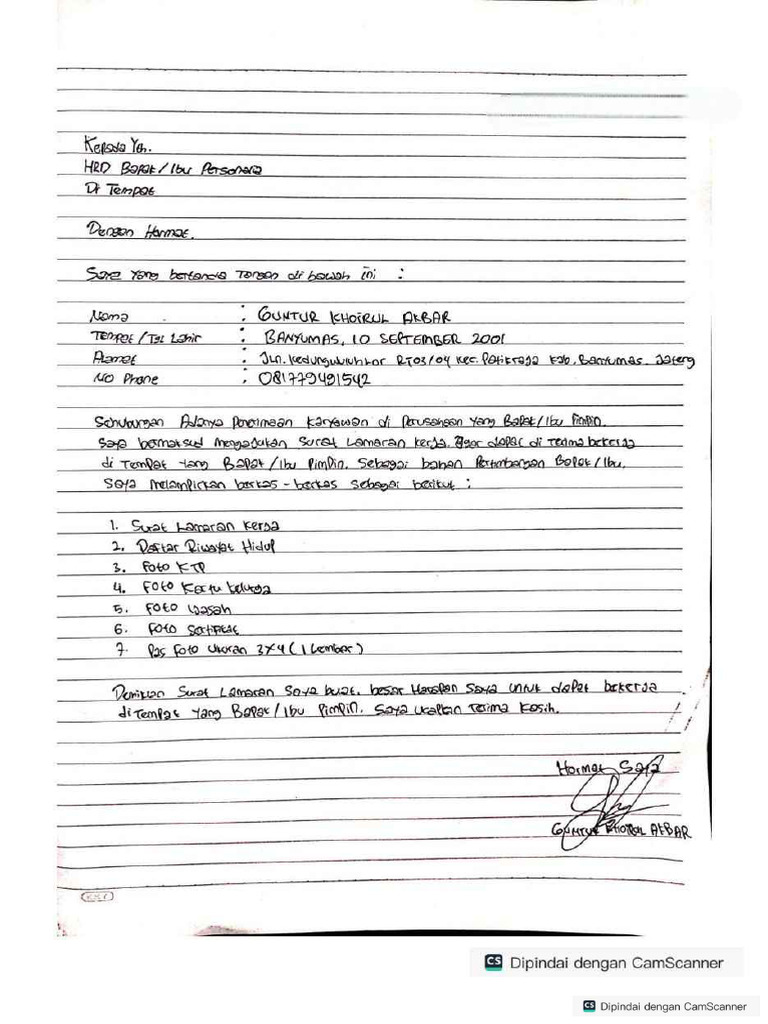 Kepada Yth.
HRD Bapak/Ibu Personara
Di Tempat
Dengan Hormat.
Saya yang bertanda Tangan di bawah ini :
Nama : GUNTUR KHOIRUL AKBAR
Tempat/Tgl Lahir : BANYUMAS, 10 SEPTEMBER 2001
Alamat : Jln. Kedungwuluhkor RT03/04 Kec. Patikraja Kab. Banyumas. Jateng
No Phone : 081779491542
Sehubungan Adanya Penerimaan Karyawan di Perusahaan yang Bapak/Ibu Pimpin.
Saya bermaksud mengajukan Surat Lamaran kerja. Agar dapat di Terima bekerja
di Tempat yang Bapak/Ibu Pimpin. Sebagai bahan Pertimbangan Bapak/Ibu.
Saya melampirkan berkas-berkas sebagai berikut :
1. Surat Lamaran Kerja
2. Daftar Riwayat Hidup
3. Foto KTP
4. Foto Kartu kelurga
5. Foto Ijasah
6. Foto Sertifikat
7. Pas Foto Ukuran 3x4 (1 Lembar)
Demikian Surat Lamaran Saya buat. besar Harapan Saya untuk dapat bekerja
di Tempat yang Bapak/Ibu Pimpin. Saya ucapkan Terima Kasih.
Hormat Saya
GUNTUR KHOIRUL AKBAR
CS Dipindai dengan CamScanner
CS Dipindai dengan CamScanner